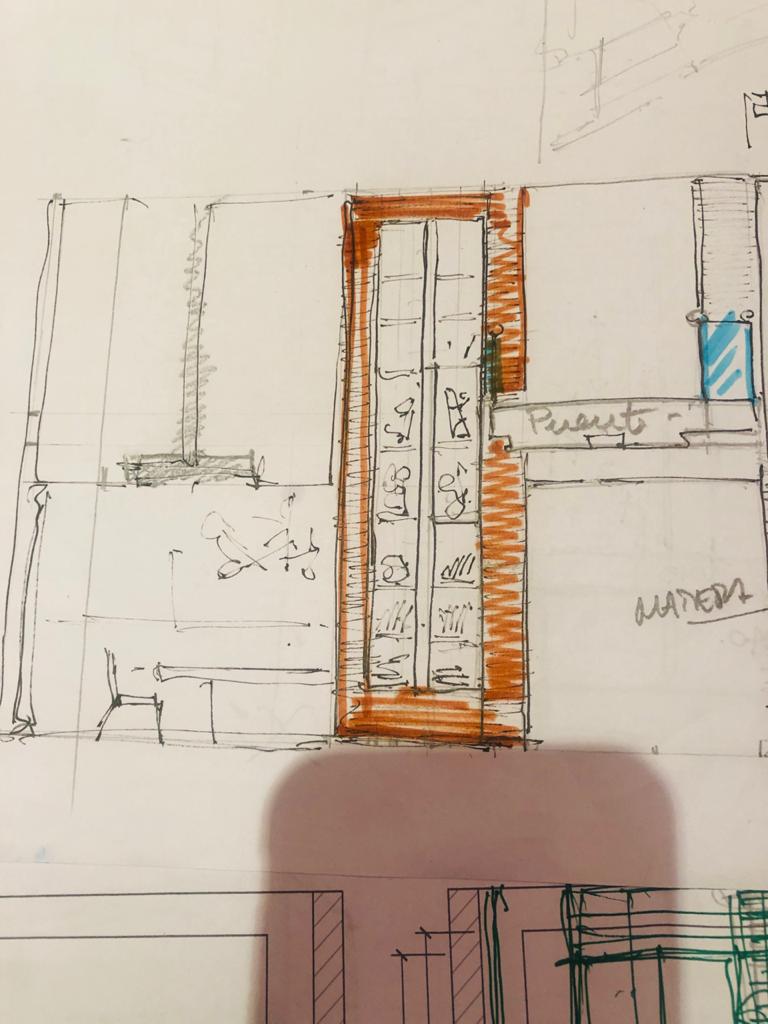 Puente
MADERA